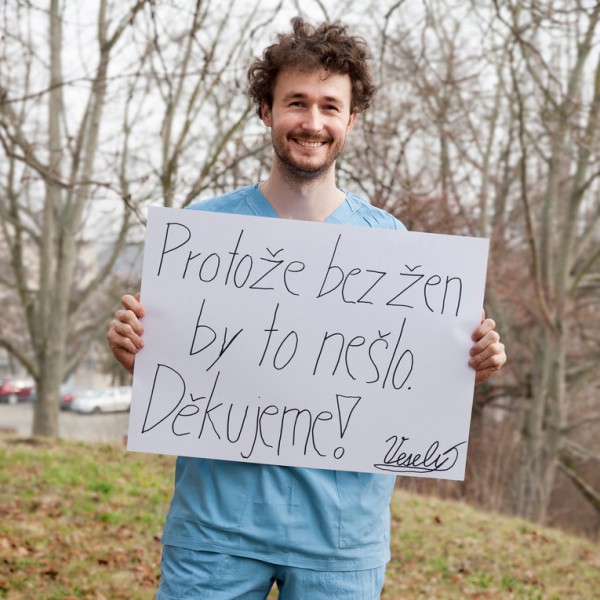 Protože bez žen
by to nešlo.
Děkujeme!
Veselý